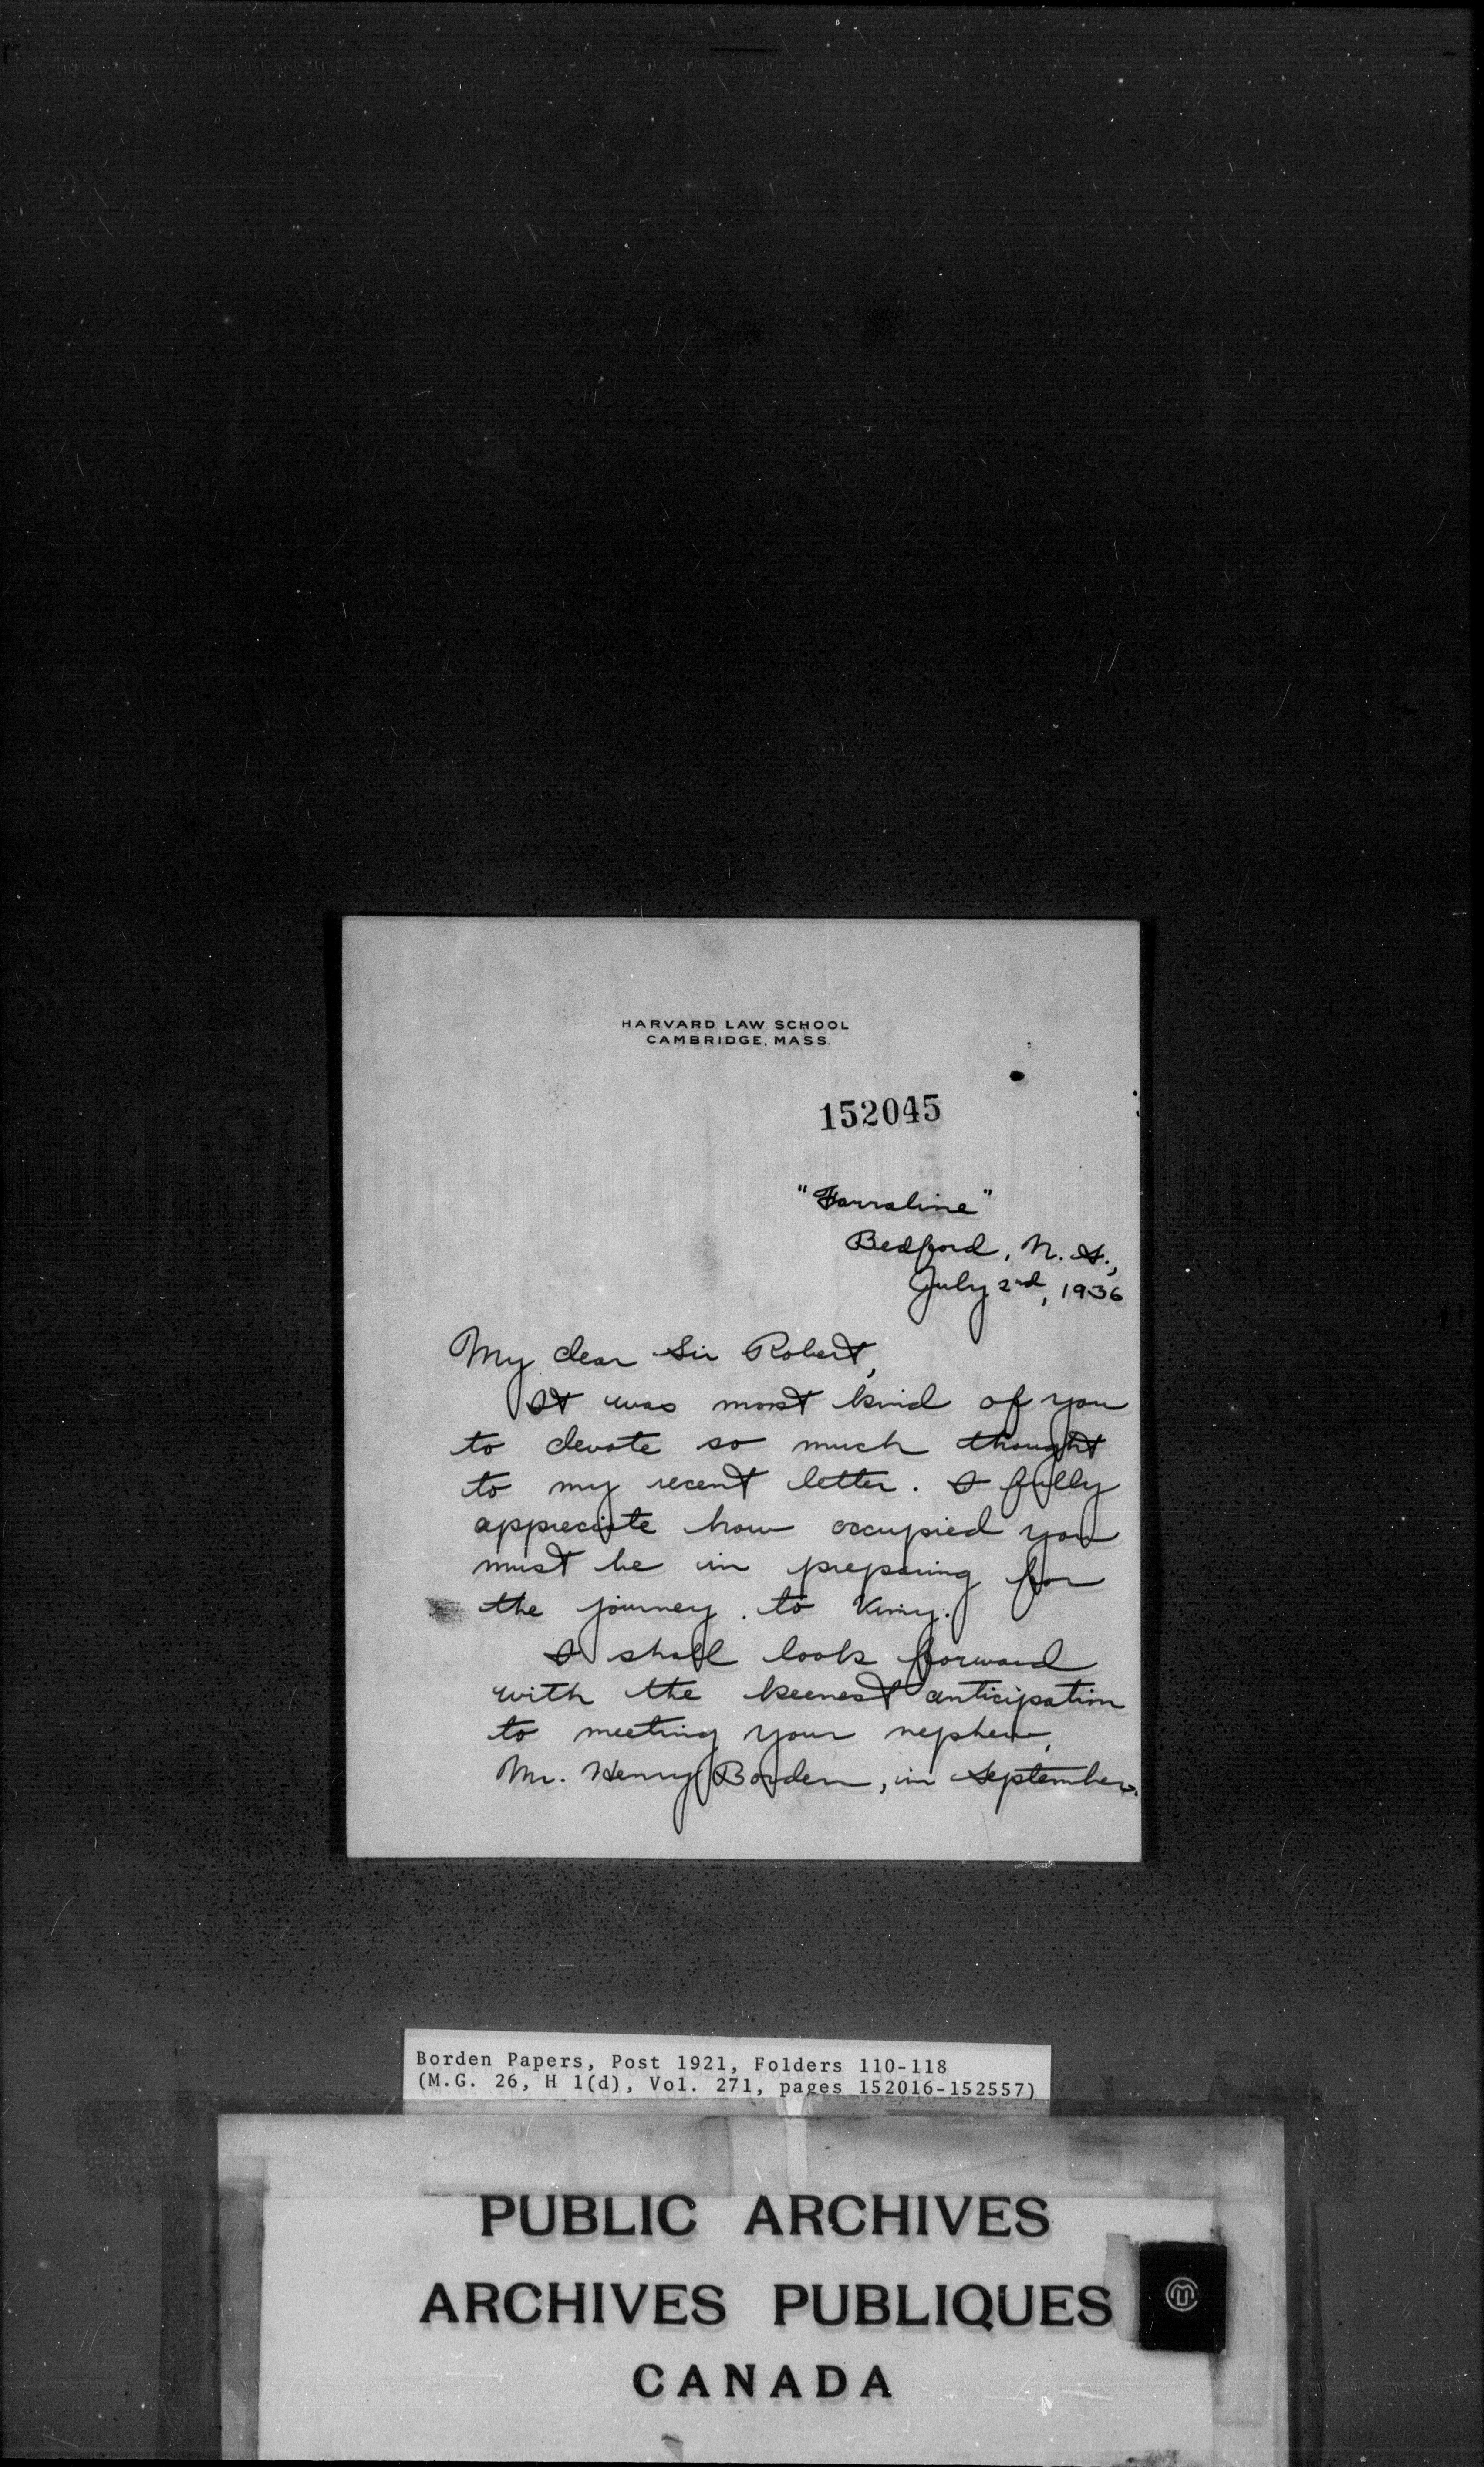 HARVARD LAW SCHOOL
CAMBRIDGE, MASS.
152045
"Farraline"
Bedford, N. S.,
July 2nd, 1936
My dear Sir Robert,
It was most kind of you
to devote so much thought
to my recent letter. I fully
appreciate how occupied you
must be in preparing for
the journey to Vimy.
I shall look forward
with the keenest anticipation
to meeting your nephew,
Mr. Henry Borden, in September.
Borden Papers, Post 1921, Folders 110-118
(M.G. 26, H 1(d), Vol. 271, pages 152016-152557)
PUBLIC ARCHIVES
ARCHIVES PUBLIQUES
CANADA